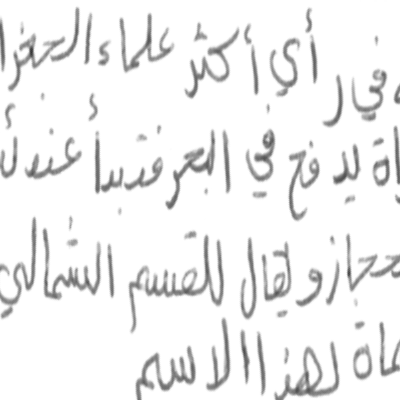 في رأي أكثر علماء الجغرا
اة ليد فح في البحر فتبدأ عند
حجاز ويقال للقسم الشمالي
ماة لهذا الاسم